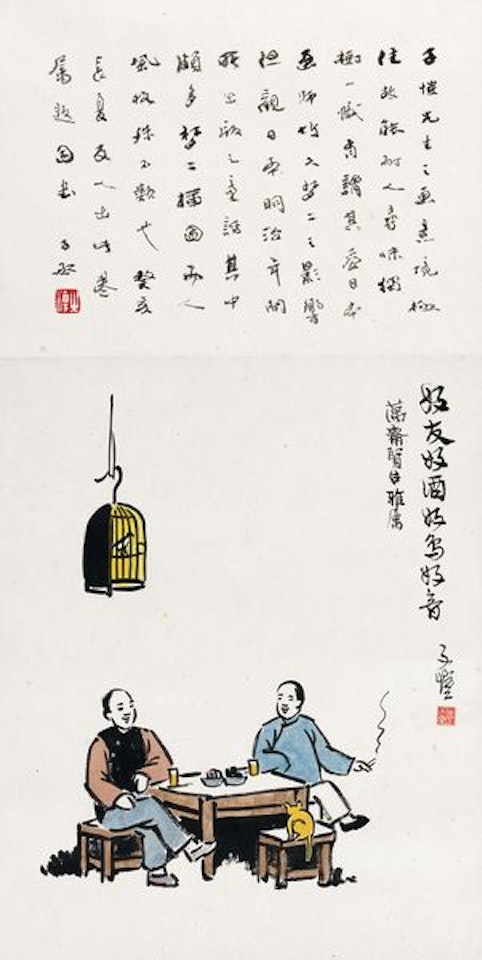 子愷先生之画意境極
佳故能耐人尋味獨
樹一幟 謂其受日本
画師竹久梦二之影響
但観日本明治年間
所出版之童話其中
頗多梦二插图而
風格殊不類也癸亥
長夏友人出此卷
属題因書
好友好酒好鳥好音
子愷
齋賢台雅属